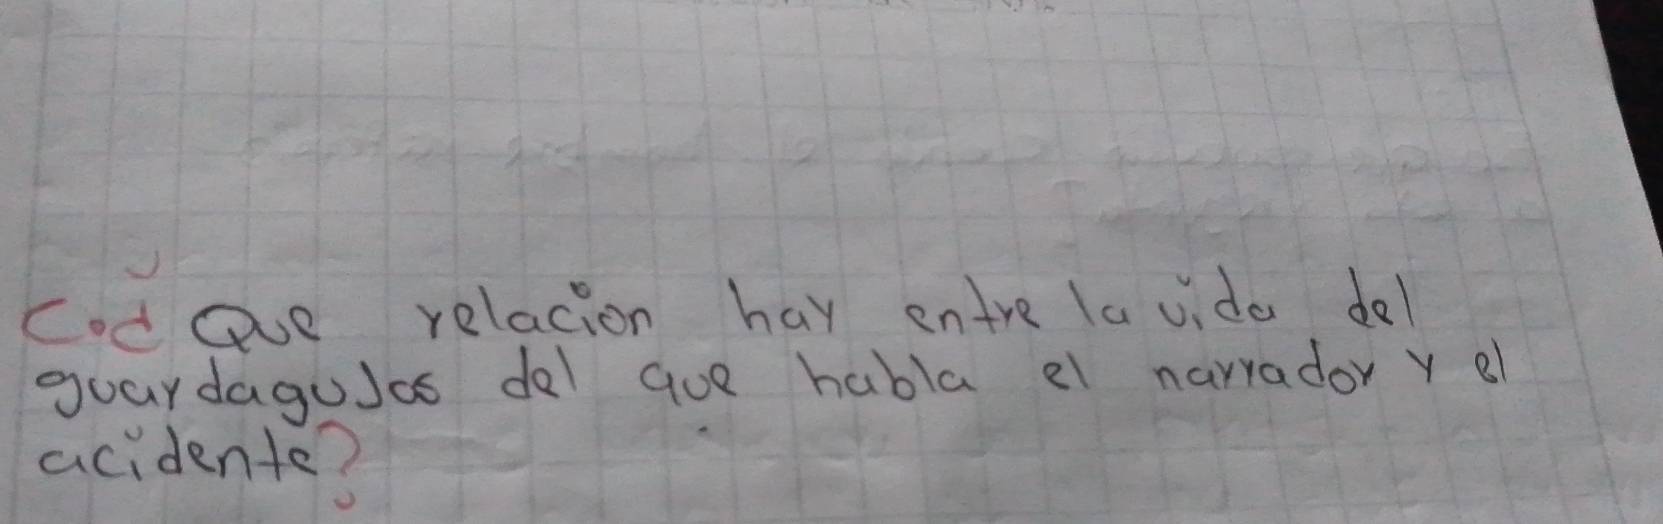 Cod Que relacion hay entre la vida del
guardagujas del que habla el narrador y el
acidente?